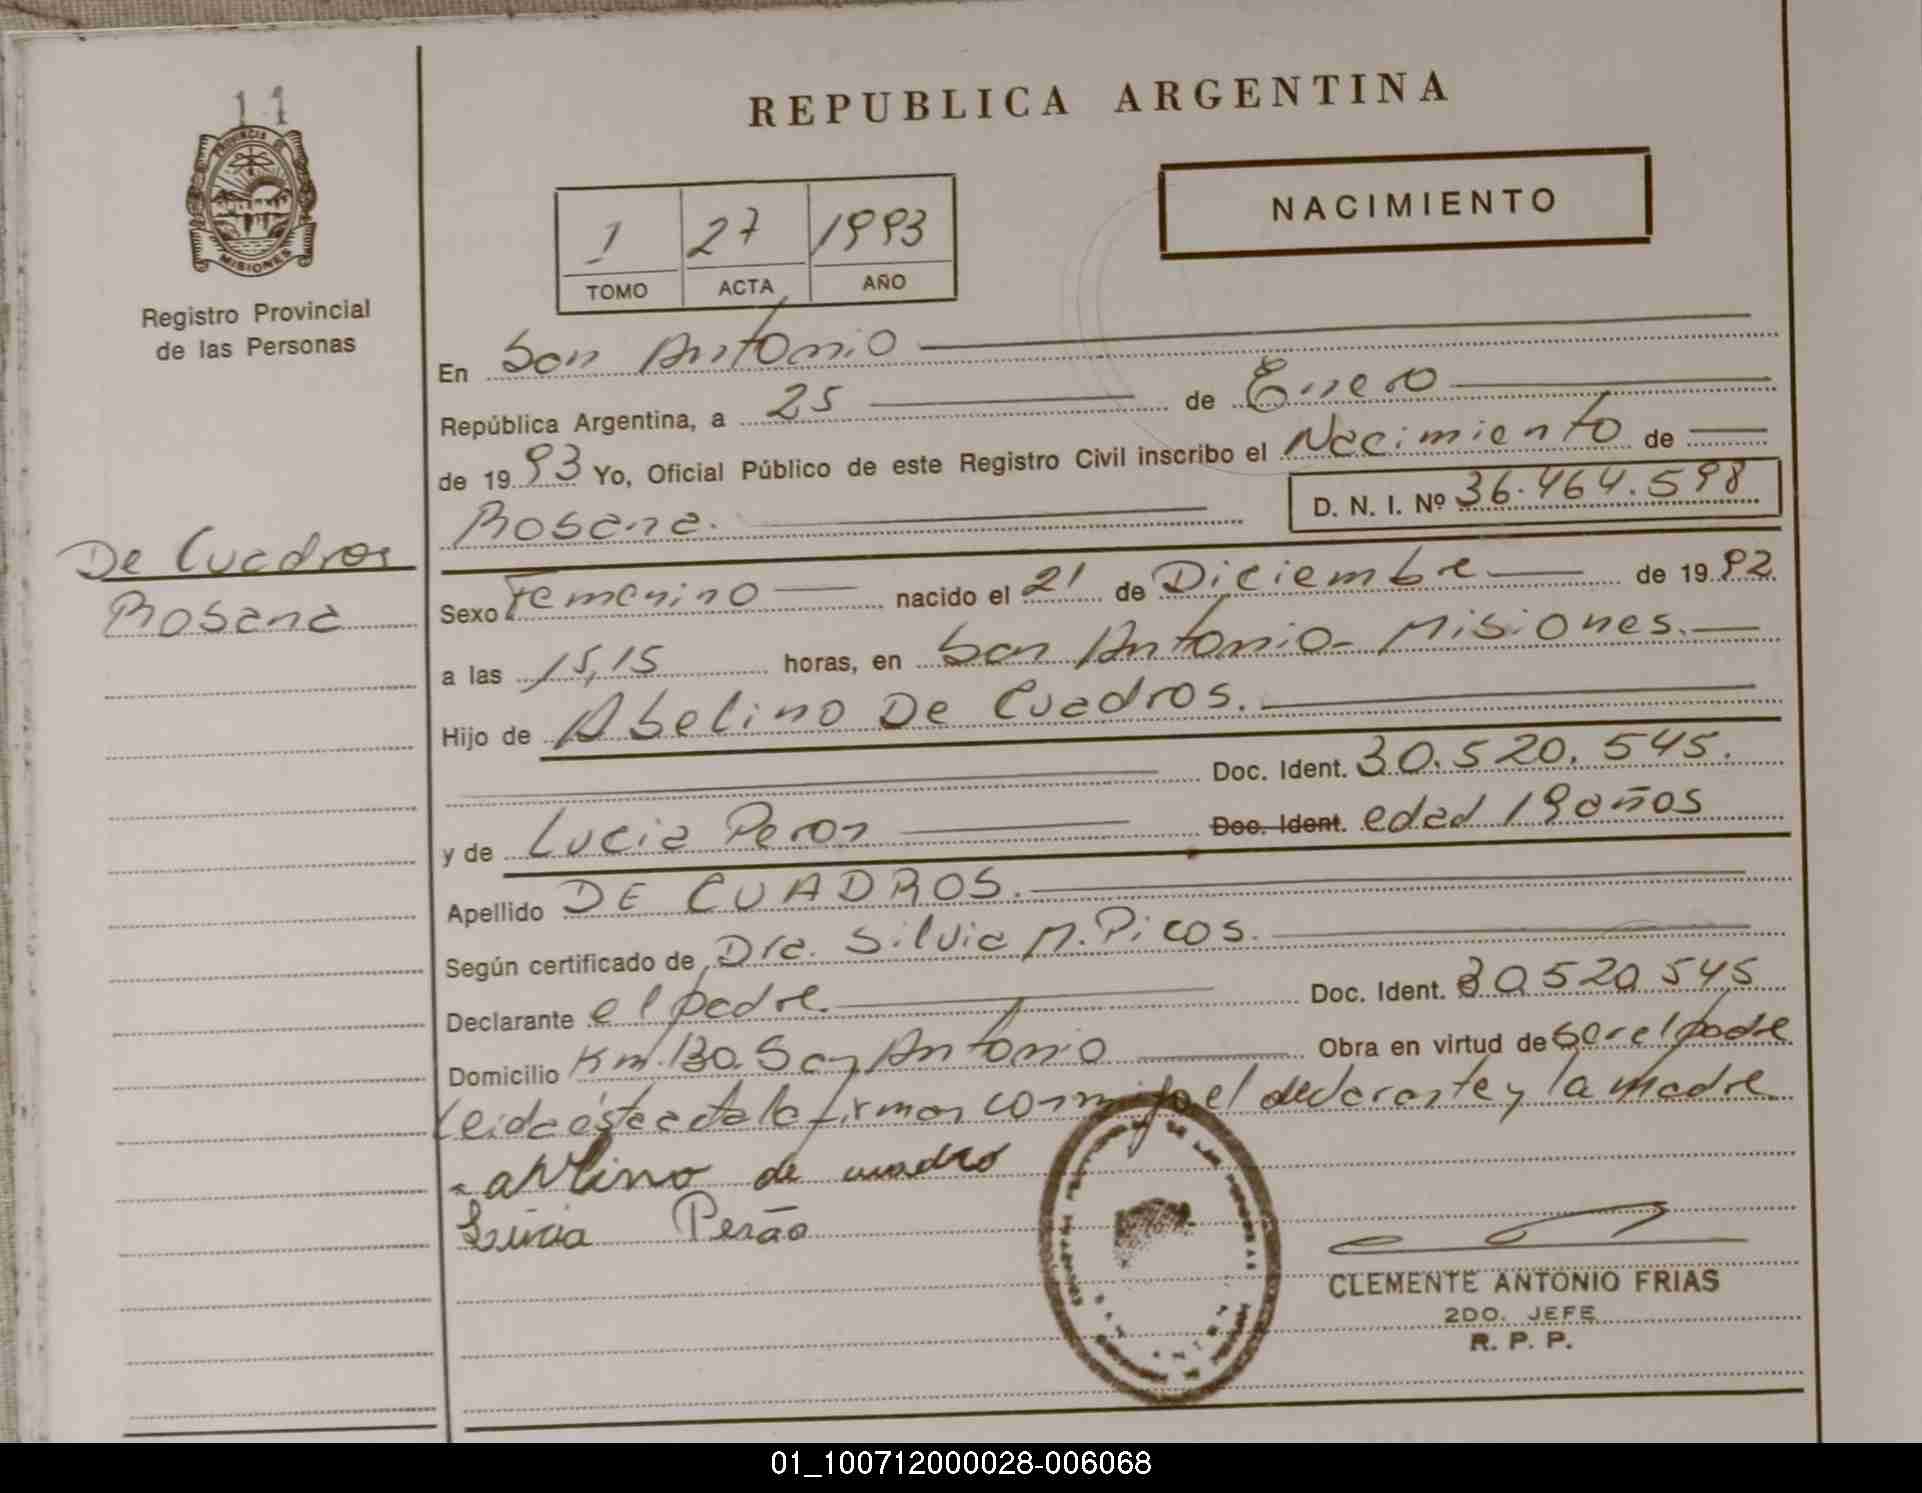 11
PROVINCIA DE
MISIONES
Registro Provincial
de las Personas
De Cuadros
Rosana
REPUBLICA ARGENTINA
NACIMIENTO
1 27 1993
TOMO ACTA AÑO
En San Antonio
República Argentina, a 25 de Enero
de 1993 Yo, Oficial Público de este Registro Civil inscribo el Nacimiento de
Rosana. D. N. I. Nº 36.464.598
Sexo Femenino nacido el 21 de Diciembre de 1992
a las 15,15 horas, en San Antonio - Misiones.
Hijo de Abelino De Cuadros.
Doc. Ident. 30.520.545.
y de Lucia Peron Doc. Ident. edad 19 años
Apellido DE CUADROS.
Según certificado de Dra. Silvia M. Picos.
Declarante el padre. Doc. Ident. 30.520.545
Domicilio Km. 130. San Antonio Obra en virtud de ser el padre
Leida ésta acta la firman conmigo el declarante y la madre
avelino de cuadro
Lúcia Perão
CLEMENTE ANTONIO FRIAS
2DO. JEFE
R. P. P.
01_100712000028-006068